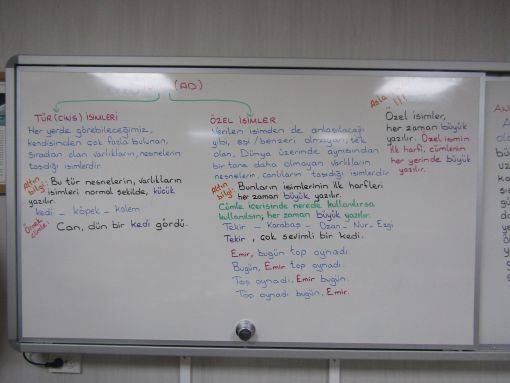 (AD)
TÜR (CİNS) İSİMLERİ
Her yerde görebileceğimiz,
kendisinden çok fazla bulunan,
sıradan olan varlıkların, nesnelerin
taşıdığı isimlerdir.
Altın bilgi: Bu tür nesnelerin, varlıkların
isimleri normal şekilde, küçük
yazılır.
kedi - köpek - kalem
Örnek cümle: Can, dün bir kedi gördü.
ÖZEL İSİMLER
Verilen isimden de anlaşılacağı
gibi, eşi / benzeri olmayan, tek
olan, Dünya üzerinde aynısından
bir tane daha olmayan varlıkların
nesnelerin, canlıların taşıdığı isimlerdir.
Altın bilgi: Bunların isimlerinin ilk harfleri
her zaman büyük yazılır.
Cümle içerisinde nerede kullanılırsa
kullanılsın; her zaman büyük yazılır.
Tekir - Karabaş - Ozan - Nur - Ezgi
Tekir, çok sevimli bir kedi.
Emir, bugün top oynadı.
Bugün, Emir top oynadı.
Top oynadı, Emir bugün.
Top oynadı bugün, Emir.
Asla !!!
Özel isimler,
her zaman büyük
yazılır. Özel ismin
ilk harfi, cümlenin
her yerinde büyük
yazılır.